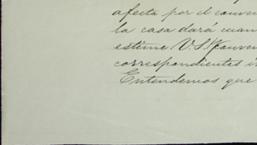 afecta por el conven
la casa dará cuan
estime V. S. conven
correspondientes i
Entendemos que